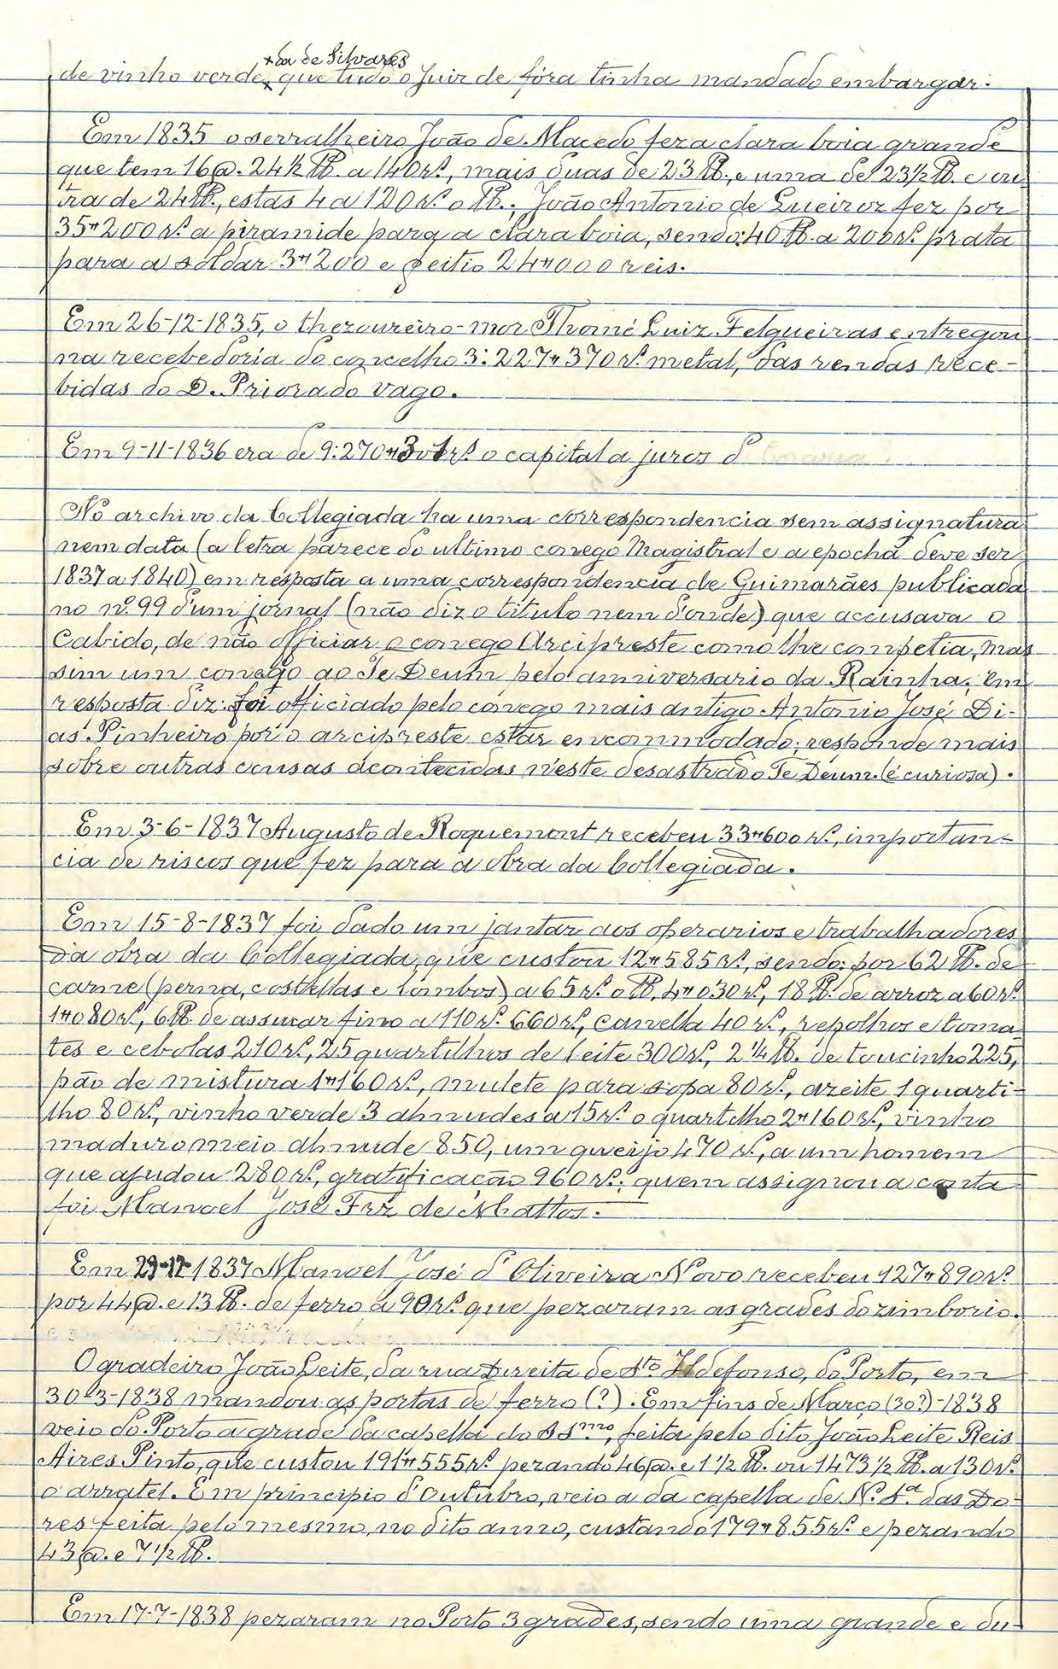 +da de Silvares
de vinho verde,x que tudo o Juiz de fóra tinha mandado embargar.
Em 1835 o serralheiro João de Macedo fez a clara boia grande
que tem 16@. 24½ ℔. a 140 rs., mais duas de 23 ℔., e uma de 23½ ℔. e ou-
tra de 24 ℔., estas 4 a 120 rs. o ℔.; João Antonio de Queiroz fez por
35$200 rs. a piramide para a clara boia, sendo: 40 ℔. a 200 rs. prata
para a soldar 3$200 e feitio 24$000 reis.
Em 26-12-1835, o thezoureiro-mor Thomé Luiz Felgueiras entregou
na recebedoria do concelho 3:227$370 rs. metal, das rendas rece-
bidas do D. Priorado vago.
Em 9-11-1836 era de 9:270$301 rs. o capital a juros d
No archivo da Collegiada ha uma correspondencia sem assignatura
nem data (a letra parece do ultimo conego Magistral e a epocha deve ser
1837 a 1840) em resposta a uma correspondencia de Guimarães publicada
no nº. 99 d'um jornal (não diz o titulo nem d'onde) que accusava o
Cabido, de não officiar o conego Arcipreste como lhe competia, mas
sim um conego ao Te Deum pelo anniversario da Rainha; em
resposta diz: foi officiado pelo conego mais antigo Antonio José Di-
as Pinheiro por o arcipreste estar encommodado; responde mais
sobre outras cousas acontecidas n'este desastrado Te Deum. (é curiosa).
Em 3-6-1837 Augusto de Roquemont recebeu 33$600 rs., importan-
cia de riscos que fez para a obra da Collegiada.
Em 15-8-1837 foi dado um jantar aos operarios e trabalhadores
da obra da Collegiada, que custou 12$585 rs., sendo: por 62 ℔. de
carne (perna, costellas e lombos) a 65 rs. o ℔, 4$030 rs., 18 ℔. de arroz a 60 rs.
1$080 rs., 6 ℔. de assucar fino a 110 rs. 660 rs., canella 40 rs., repolhos e toma-
tes e cebolas 210 rs., 25 quartilhos de leite 300 rs., 2¼ ℔. de toucinho 225,
pão de mistura 1$160 rs., mulete para sopa 80 rs., azeite 1 quarti-
lho 80 rs., vinho verde 3 almudes a 15 rs. o quartilho 2$160 rs., vinho
maduro meio almude 850, um queijo 470 rs., a um homem
que ajudou 280 rs., gratificação 960 rs.; quem assignou a conta
foi Manoel José Frz de Mattos.
Em 29-12-1837 Manoel José d'Oliveira Novo recebeu 127$890 rs.
por 44@. e 13 ℔. de ferro a 90 rs. que pezaram as grades do zimborio.
O gradeiro João Leite, da rua Direita de Sto Ildefonso, do Porto, em
30-3-1838 mandou as portas de ferro (?). Em fins de Março (30?)-1838
veio do Porto a grade da capella do SSmo, feita pelo dito João Leite Reis
Aires Pinto, que custou 191$555 rs. pezando 46@. e 1½ ℔. ou 1473½ ℔. a 130 rs.
o arratel. Em principio d'Outubro, veio a da capella de N. Sa. das Do-
res feita pelo mesmo, no dito anno, custando 179$855 rs. e pezando
43@. e 7½ ℔.
Em 17-7-1838 pezaram no Porto 3 grades, sendo uma grande e du-